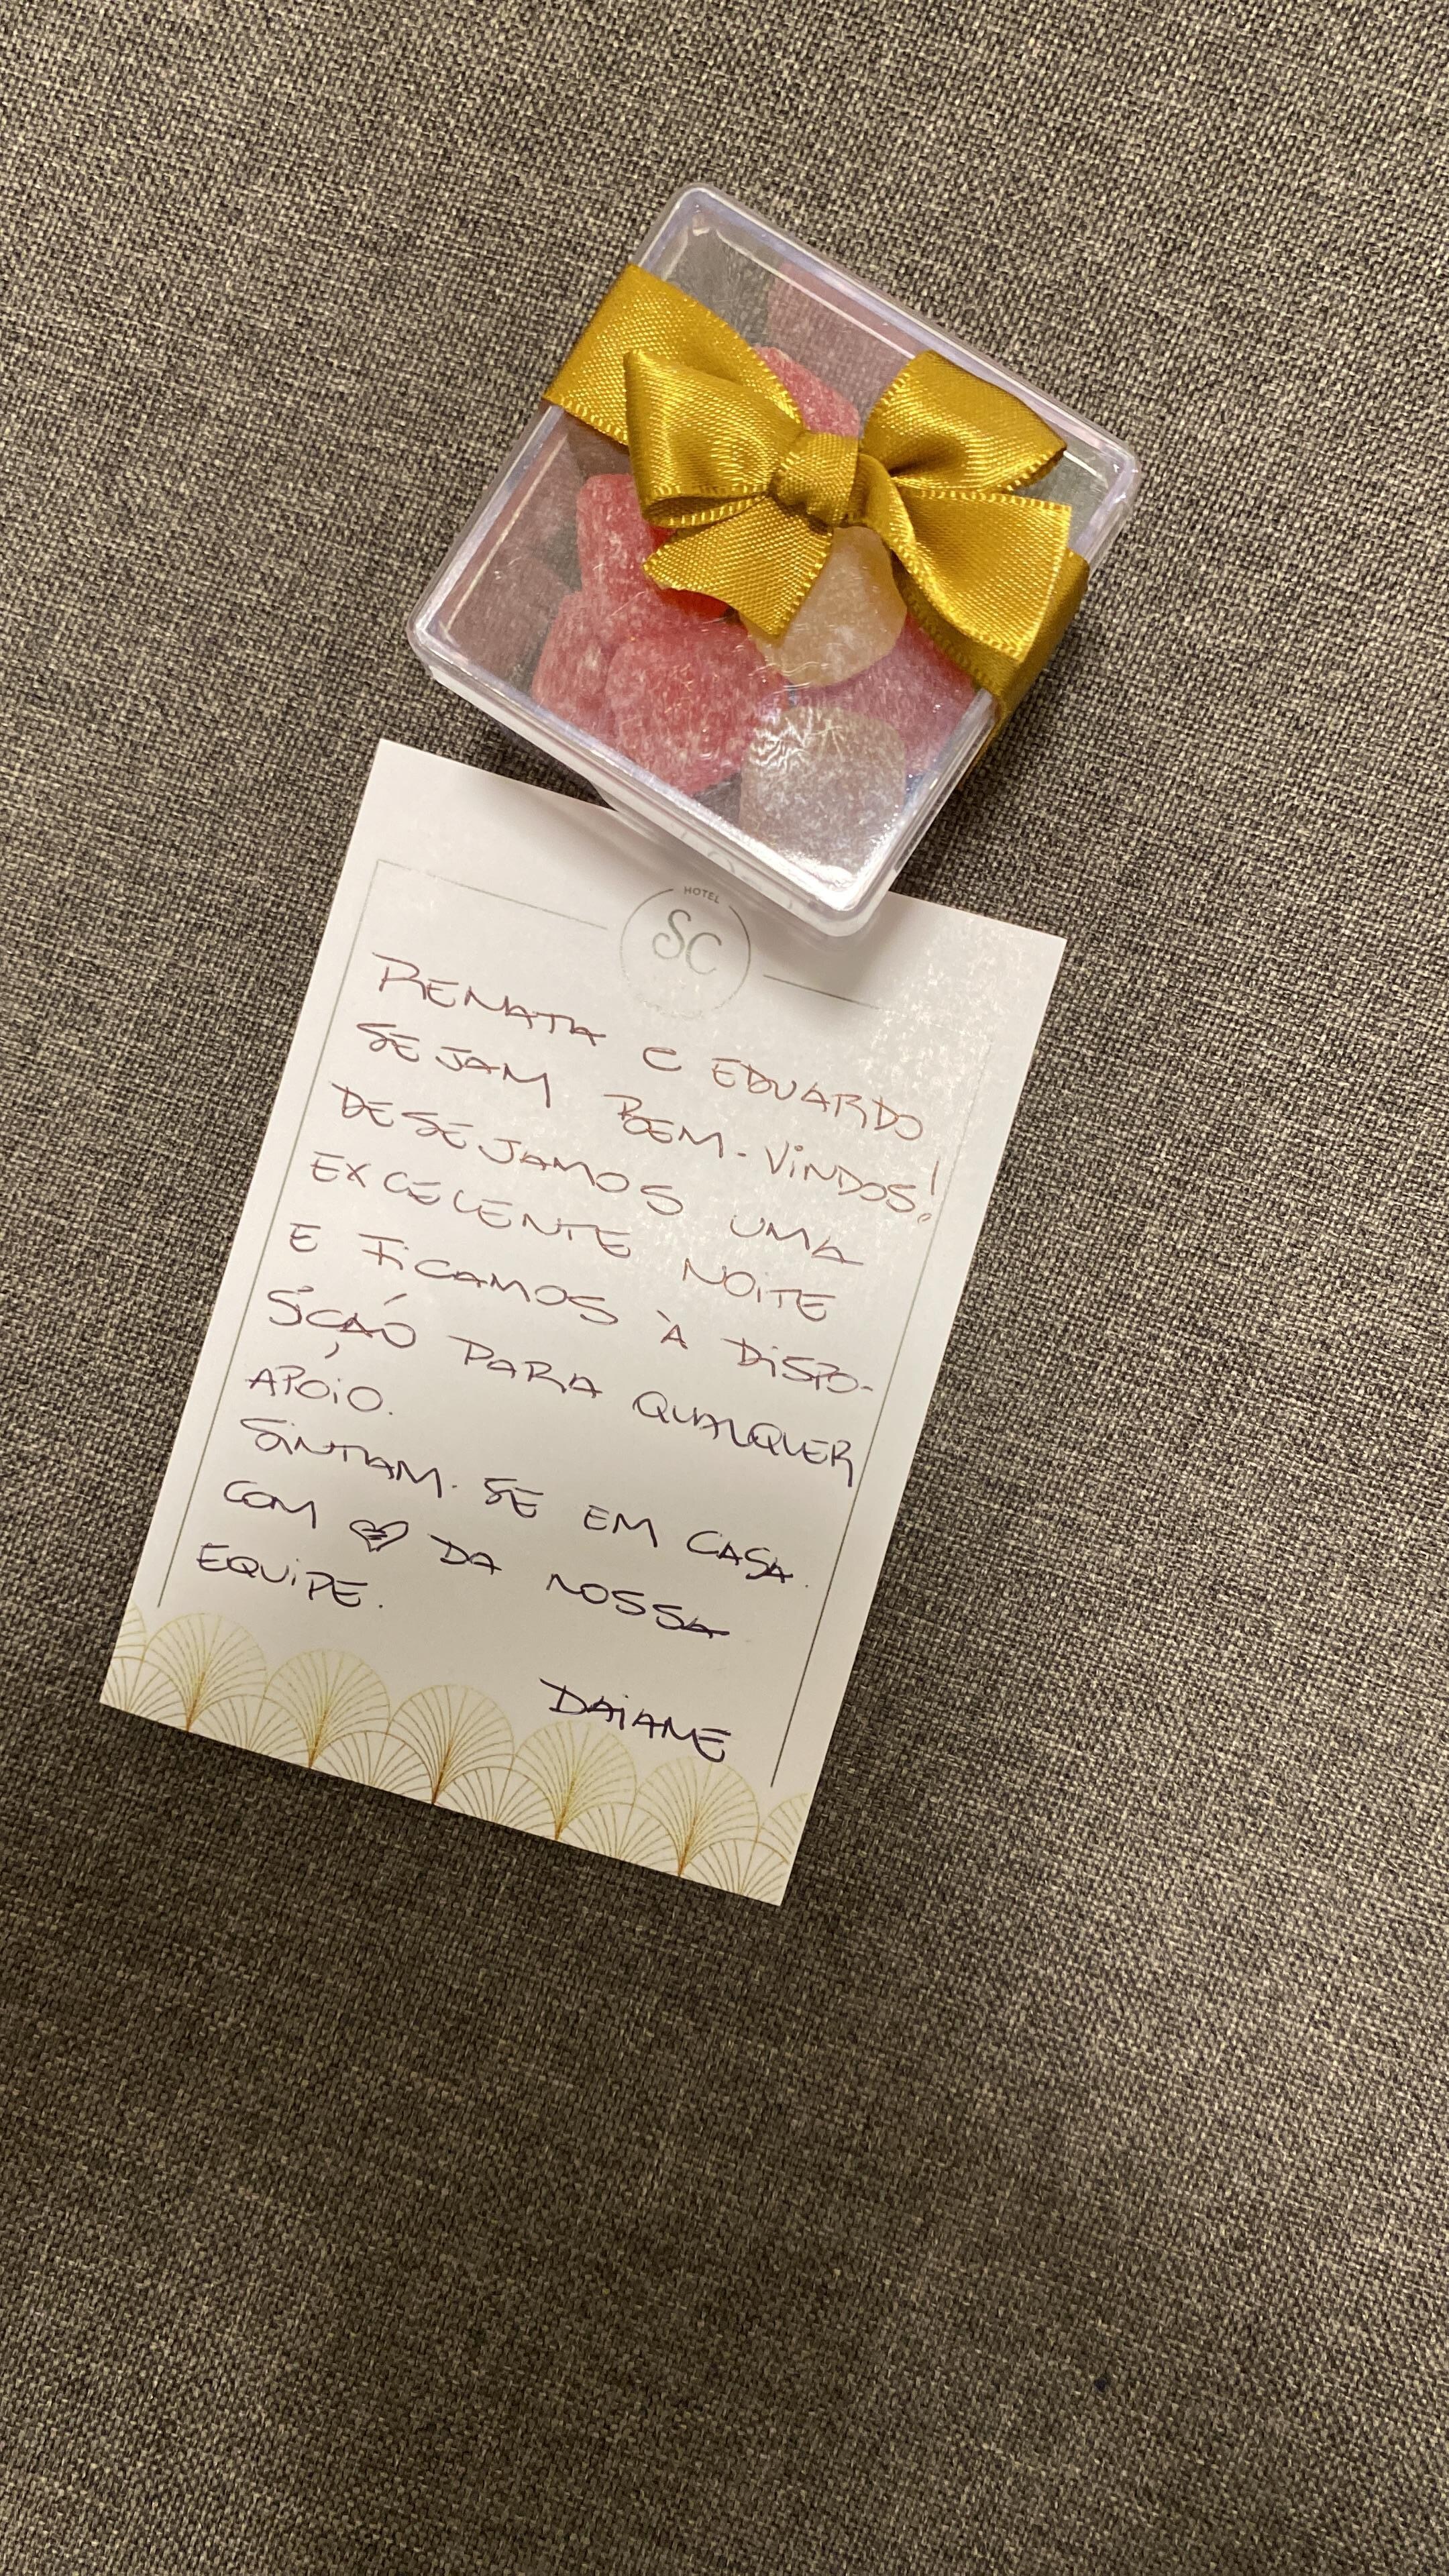 HOTEL
SC
RENATA E EDUARDO
SEJAM BEM-VINDOS!
DESEJAMOS UMA
EXCELENTE NOITE
E FICAMOS À DISPO-
SIÇÃO PARA QUALQUER
APOIO.
SINTAM-SE EM CASA.
COM ♥ DA NOSSA
EQUIPE.
DAIANE